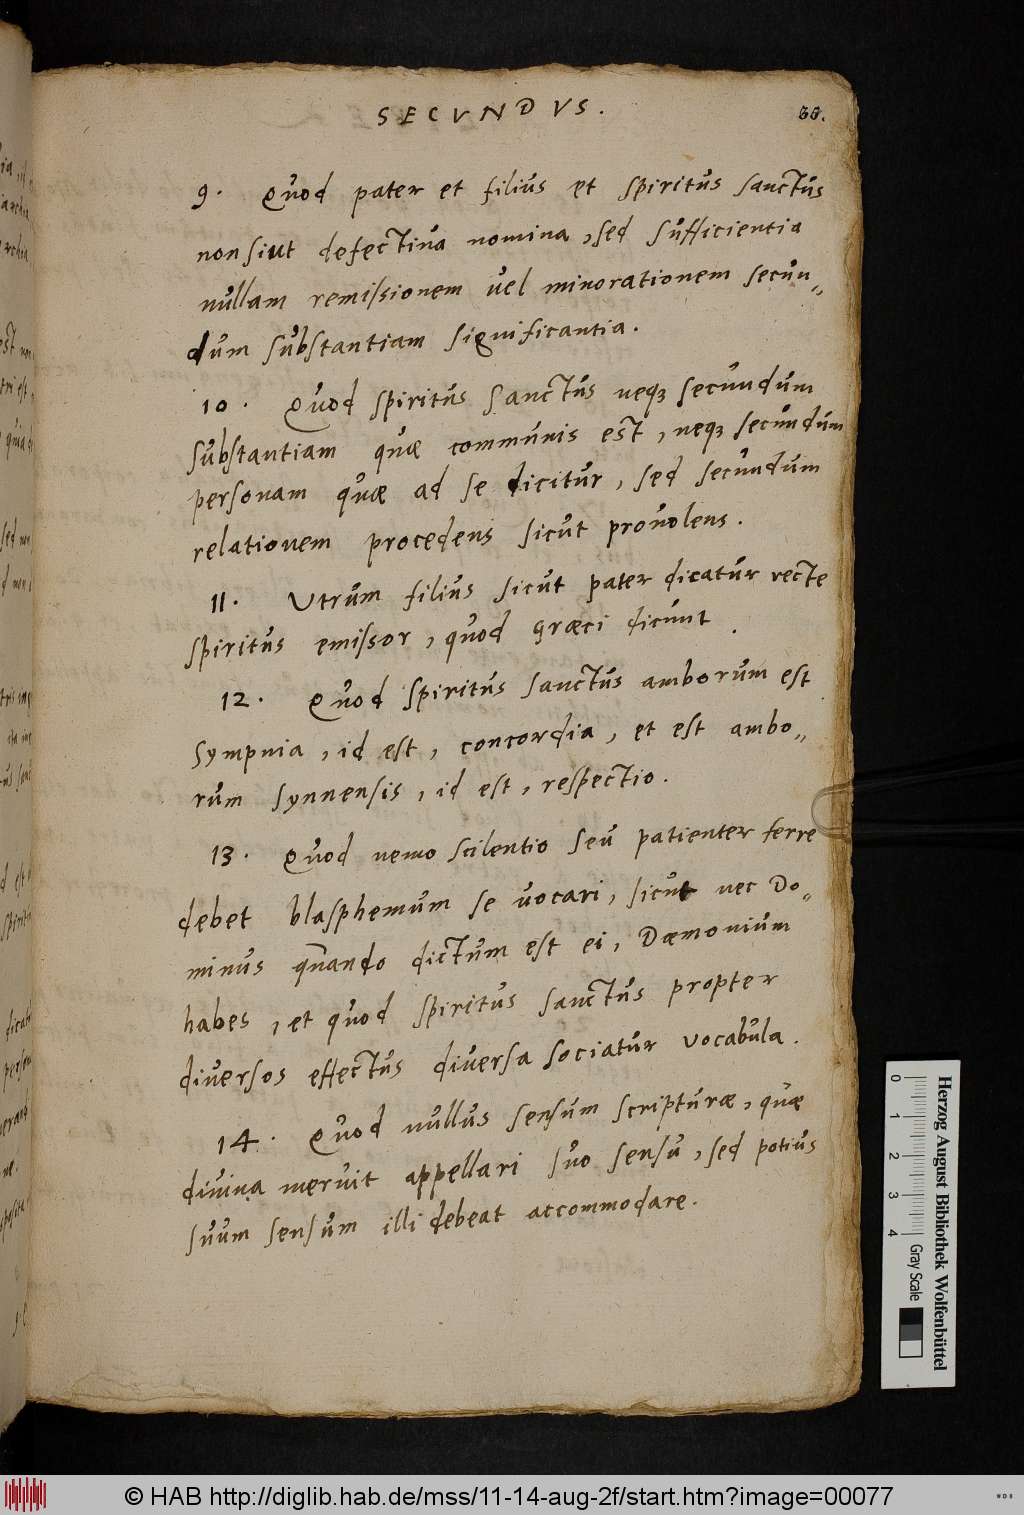 SECVNDVS.
9. Quod pater et filius et spiritus sanctus
non sint defectiva nomina, sed sufficientia
nullam remissionem vel minorationem secun„
dum substantiam significantia.
10. Quod spiritus Sanctus neqȝ secundum
substantiam quæ communis est, neqȝ secundum
personam quæ ad se dicitur, sed secundum
relationem procedens sicut provolens.
11. Vtrum filius sicut pater dicatur recte
spiritus emissor, quod græci dicunt.
12. Quod spiritus sanctus amborum est
Sympnia, id est, concordia, et est ambo„
rum synnensis, id est, respectio.
13. Quod nemo scilentio seu patienter ferre
debet blasphemum se vocari, sicut nec Do„
minus quando dictum est ei, Dæmonium
habes, et quod spiritus sanctus propter
diversos effectus diversa sociatur vocabula.
14. Quod nullus sensum scripturæ, quæ
divina meruit appellari suo sensu, sed potius
suum sensum illi debeat accommodare.
Herzog August Bibliothek Wolfenbüttel
0 1 2 3 4 Gray Scale
© HAB http://diglib.hab.de/mss/11-14-aug-2f/start.htm?image=00077